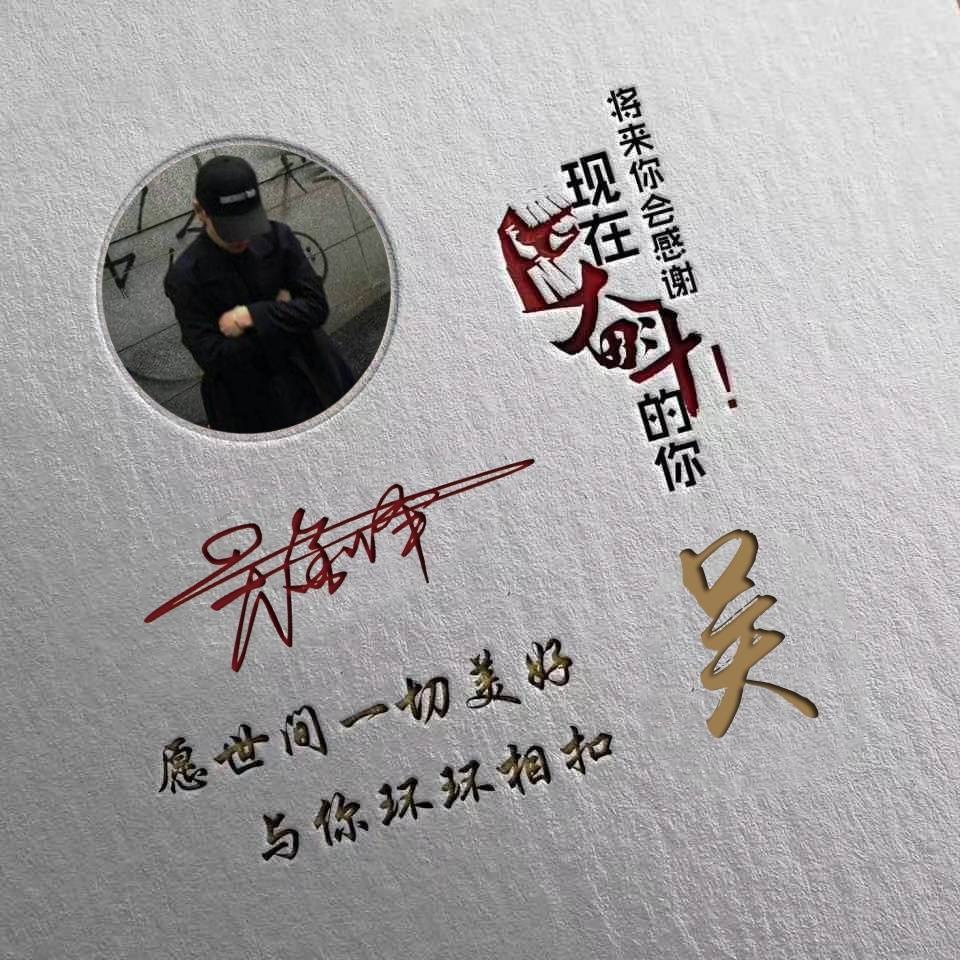 将来你会感谢
现在奋斗的你!
吴
愿世间一切美好
与你环环相扣